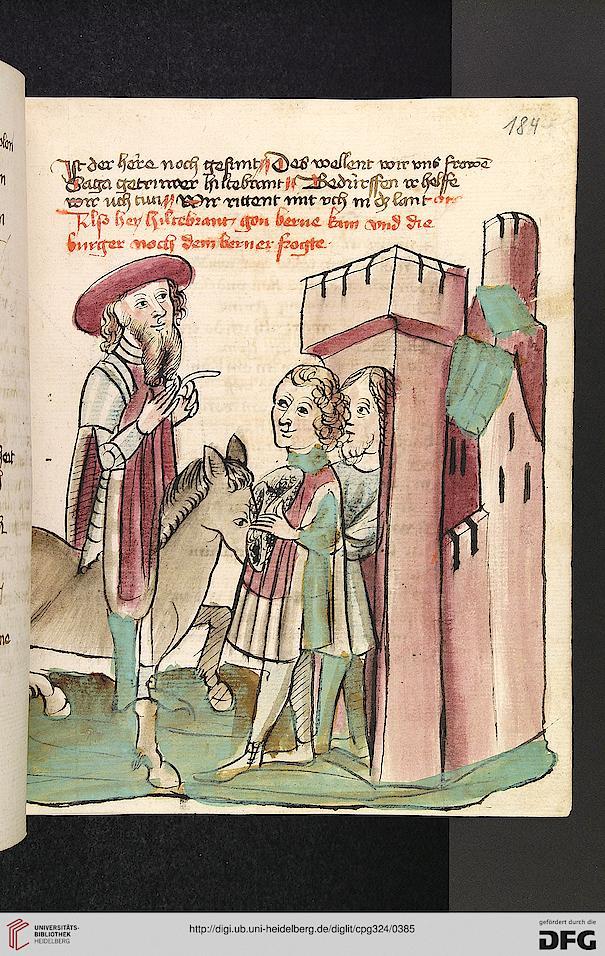 184
Ist der here noch gesunt Des wellent wir vns frowē
Saga getruwer hiltebrant Bedürffen ir helffe
wir uch tun Wir rittent mit uch in dz lant
Also her Hiltebrant gon berne kam vnd die
burger noch dem berner frogte
UNIVERSITÄTS-
BIBLIOTHEK
HEIDELBERG
http://digi.ub.uni-heidelberg.de/diglit/cpg324/0385
gefördert durch die
DFG